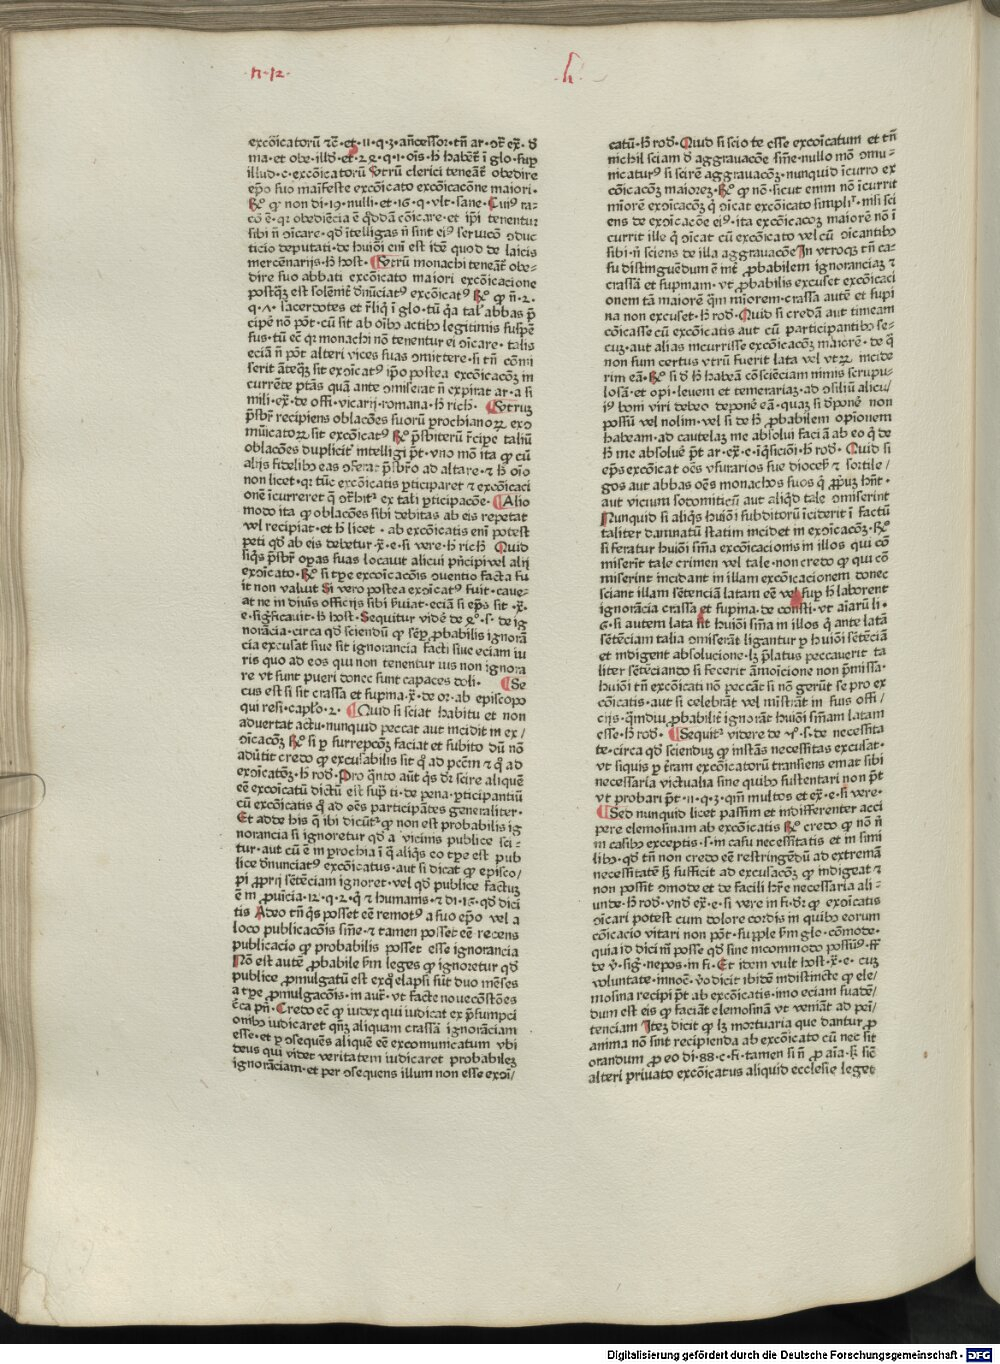 ·n·12·
h
excōicatorū ⁊c̄·et·11·q·3·añcessor·tñ ar·
ma·et obe·illđ·et·28·q·1·oīs·h̄ habet̄ ī glo·sup
illud·c·excōicatorū Vtrū clerici teneāt̄ obedire
ep̄o suo māifeste excōicato excōicacōne maiori·
R̄o qꝫ non di·19·nulli·et·16·q·vlt·sane·Cuiꝰ ra⸗
cō ē·qꝛ obediēcia ē q̄dā cōicare·et ip̄i tenentur
sibi n̄ ɔicare·qđ ītelligas n̄ sint eiꝰ seruicō ɔduc
ticio deputati·de huiōi em̄ est idē quod de laicis
mercēnarijs·h̄ host·¶Vtrū monachi teneāt̄ obe⸗
dire suo abbati excōicato maiori excōicacione
postqꝫ est solēnit̄ dn̄uciatꝰ excōicatꝰ R̄o qꝫ n̄·2·
q·
cipē nō pōt·cū sit ab oībꝰ actibꝰ legitimis suspē
sus·tū eciā qꝛ monachi nō tenentur ei ɔicare·talis
eciā n̄ pōt alteri vices suas ɔmittere·si tn̄ cōmi
serit āteqꝫ sit exɔicatꝰ ip̄o postea excōicacōꝫ in
currēte p̄tās quā ante ɔmiserat n̄ expirat ar·a si
mili·ex̄·de offi·vicarij·romana·h̄ rich· ¶Vtrum
p̄sbr̄ recipiens oblacōes suorū ꝑrochianoꝝ exɔ
mūicatoꝝ sit excōicatꝰ R̄o p̄sbiterū r̄cipe taliū
oblacōes duplicit̄ intelligi p̄t·vno mō ita qꝫ cū
alijs fidelibꝰ eas offerat p̄sbr̄o ad altare·⁊ h̄ oīo
non licet·qꝛ tūc excōicatis ꝑticiparet ⁊ excōicaci
onē īcurreret q̄ ɔtͬhitͬ ex tali ꝑticipacōe·¶Alio
modo ita qꝫ oblacōes sibi debitas ab eis repetat
vel recipiat·et h̄ licet·ab excōicatis enī potest
peti qđ ab eis debetur·x̄·e·si vere·h̄ rich̄ Quid
siq̄s p̄sbr̄ oꝑas suas locauit alicui pn̄cipi vel alij
exɔicato·R̄o si tꝑe excōicacōis ɔuentio facta fu
it non valuit Si vero postea exɔicatꝰ fuit·caue⸗
at ne in diuīs officijs sibi s̄uiat·eciā si ep̄s sit·x̄·
e·sigſicauit·h̄ host·Sequitur videre de 8º·s·de ig
norācia·circa qđ sciendū qꝫ semꝑ ꝓbabilis ignorā
cia excusat siue sit ignorancia facti siue eciam iu
ris quo ad eos qui non tenentur ius non ignora
re vt sunt pueri donec sunt capaces doli· ¶Se
cus est si sit crassa et supina·x̄·de oz·ab episcopo
qui resi·capl̄o·2·¶Quid si sciat habitu et non
aduertat actu·nunquid peccat aut incidit in ex/
ɔicacōꝫ R̄o si ꝑ surrepcōꝫ faciat et subito dū nō
adūtit credo qꝫ excusabilis sit qͦ ad pccm̄ ⁊ qͦ ad
exɔicatōꝫ·h̄ rođ·Pro qͣnto aūt q̄s dꝛ scire aliquē
eē excoicatū dictū est supͣ ti·de pena·ꝑticipantiū
cū excōicatis qͦ ad oēs participātes generaliter·
Et adde his q̄ ibi dicūtͬ qꝫ non est probabilis ig
norancia si ignoretur qđ a vicinis publice sci⸗
tur·aut cū ē in ꝑrochia ī q̄ aliq̄s eo tꝑe est pub
lice dn̄unciatꝰ excōicatus·aut si dicat qꝫ episco/
pi ꝓprij sētēciam ignoret·vel qđ publice factuꝫ
ē in ꝓuīcia·12·q·2·q̄ ⁊ humanis·⁊ di·16·qđ dici
tis Adeo tn̄ q̄s posset eē remotꝰ a suo ep̄o vel a
loco publicacōis sīnie·⁊ tamen posset eē recens
publicacio qꝫ probabilis posset esse ignorancia
Nō est autē ꝓbabile s̄m leges qꝫ ignoretur qđ
publice ꝓmulgatū est exq̄ elapsi sūt duo mēses
a tꝑe ꝓmulgacōis·in aut̄·vt facte nouecōstōes
c̄ca pn̄·Credo eē qꝫ iudex qui iudicat ex p̄sumpci
onibꝰ iudicaret qn̄qꝫ aliquam crassā ignorāciam
esse·et ꝑ ɔsequēs aliquē eē excomunicatum vbi
deus qui videt veritatem iudicaret probabileꝫ
ignorāciam·et per ɔsequens illum non esse exɔi/
catū·h̄ rođ·Quid si scio te esse excoīcatum et tn̄
nichil sciam đ aggrauacōe sīnie·nullo mō ɔmu⸗
nicaturꝰ si scirē aggrauacōꝫ·nunquid īcurro ex
cōicacōꝫ maiorez·R̄o qꝫ nō·sicut enim nō īcurrit
mīorē exɔicacōꝫ q̄ ɔicat excōicato simplͬr·nisi sci
ens de exɔicacōe eiꝰ·ita excōicacōꝫ maiorē nō ī
currit ille q̄ ɔicat cū excōicato vel cū ɔicantibꝰ
sibi·n̄ sciens de illa aggrauacōe In vtroqꝫ tn̄ ca⸗
su distinguēdum ē int̄ ꝓbabilem ignoranciaꝫ ⁊
crassā et supinam·vt ꝓbabilis excuset excōicaci
onem tā maiorē qͣm miorem·crassa autē et supi
na non excuset·h̄ rođ·Quid si credā aut timeam
cōicasse cū excōicatis aut cū participantibꝰ se⸗
cuꝫ·aut alias incurrisse excōicacōꝫ maiorē·de q̄
non sum certus vtrū fuerit lata vel vtꝝ incide
rim eā·R̄o si đ h̄ habeā cōsciēciam nimis scrupu⸗
losā·et opi·leuem et temerariaꝫ·ad ɔsiliū alicu/
iꝰ boni viri debeo deponē eā·quaꝫ si đponē non
possū vel nolim·vel si de h̄ ꝓbabilem opīonem
habeam·ad cautelaꝫ me absolui faciā ab eo q̄ de
h̄ me absoluē p̄t ar·ex̄·e·īq̄sicioī·h̄ rođ· Quid si
ep̄s excōicat oēs vsurarios sue dioceſ ⁊ sortile/
gos aut abbas oēs monachos suos q̄ ꝓpuꝫ hn̄t·
aut vicium sodomiticū aut aliqđ tale ɔmiserint
Nunquid si aliq̄s huiōi subditorū īciderit ī factū
taliter damnatū statim incidet in exɔicacōꝫ·R̄o
si feratur huiōi sīnia excōicacionis in illos qui cō
miserint tale crimen vel tale·non credo qꝫ qui cō
miserint incidant in illam excōicacionem donec
sciant illam sētenciā latam eē vel sup h̄ laborent
ignorācia crassa et supina·de consti·vt aīarū li·
6·si autem lata sit huiōi sīnia in illos q̄ ante latā
sētēciam talia ɔmiserāt ligantur ꝑ huiōi sētēciā
et indigent absolucione·lꝫ p̄latus peccauerit ta
liter sētēciando si fecerit āmoicione non p̄missa·
huiōi tn̄ excōicati nō peccāt si nō gerūt se pro ex
cōicatis·aut si celebrāt vel mīstrāt in suis offi/
cijs·qͣmdiu ꝓbabilit̄ ignorāt huiōi sīniam latam
esse·h̄ rođ· ¶Sequitͬ videre de 9º·s·de necessita⸗
te·circa qđ sciendum qꝫ instās necessitas excusat·
vt siquis ꝑ tͬram excōicatorū transiens emat sibi
necessaria victualia sine quibꝰ sustentari non p̄t
vt probari p̄t·11·q·3·qm̄ multos et ex̄·e·si vere·
¶Sed nunquid licet passim et indifferenter acci
pere elemosinam ab excōicatis R̄o credo qꝫ nō n̄
in casibꝰ exceptis·s·in casu necessitatis et in simi
libꝰ·qđ tn̄ non credo eē restringēdū ad extremā
necessitatē sꝫ sufficit ad excusacōꝫ qꝫ indigeat ⁊
non possit ɔmode et de facili hr̄e necessaria ali⸗
unde·h̄ rođ·vnđ ex̄·e·si vere in fi·dꝛ qꝫ exɔicatis
ɔicari potest cum dolore cordis in quibꝰ eorum
cōicacio vitari non pōt·supple s̄m glo·cōmode·
quia id dicim̄ posse qđ sine incommodo possūꝰ·ff̄
de v̄·sig̓·nepos·in fi·Et idem vult host·x̄·e·cuꝫ
voluntate·innoc̄·v̊o dicit ibidē indistincte qꝫ ele/
mosina recipi p̄t ab excōicatis·imo eciam suadē/
dum est eis qꝫ faciāt elemosinā vt veniāt ad peī/
tenciam Itez dicit qꝫ lꝫ mortuaria que dantur ꝓ
anima nō sint recipienda ab excōicato cū nec sit
orandum ꝓ eo di·88·c·fi·tamen si n̄ ꝓ aīa·sꝫ sic̄
alteri priuato excōicatus aliquid ecclesie leget
Digitalisierung gefördert durch die Deutsche Forschungsgemeinschaft · DFG